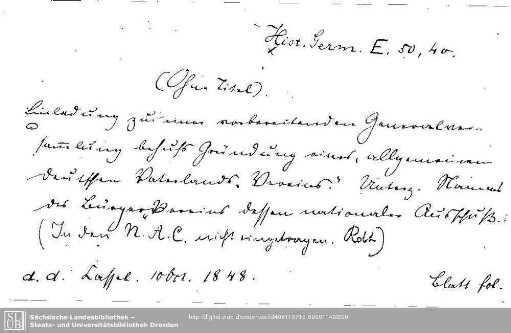 Hist. Germ. E. 50, 40.
(Ohne Titel).
Einladung zu einer vorbereitenden Generalver-
sammlung behufs Gründung eines „allgemeinen
deutschen Vaterlands-Vereins.“ Unterz. Namens
des Bürger-Vereins dessen nationaler Ausschuß.:
(In den N. A. C. nicht eingetragen. Roth)
d. d. Cassel. 10 Oct. 1848. Blatt fol.
Sächsische Landesbibliothek –
Staats- und Universitätsbibliothek Dresden